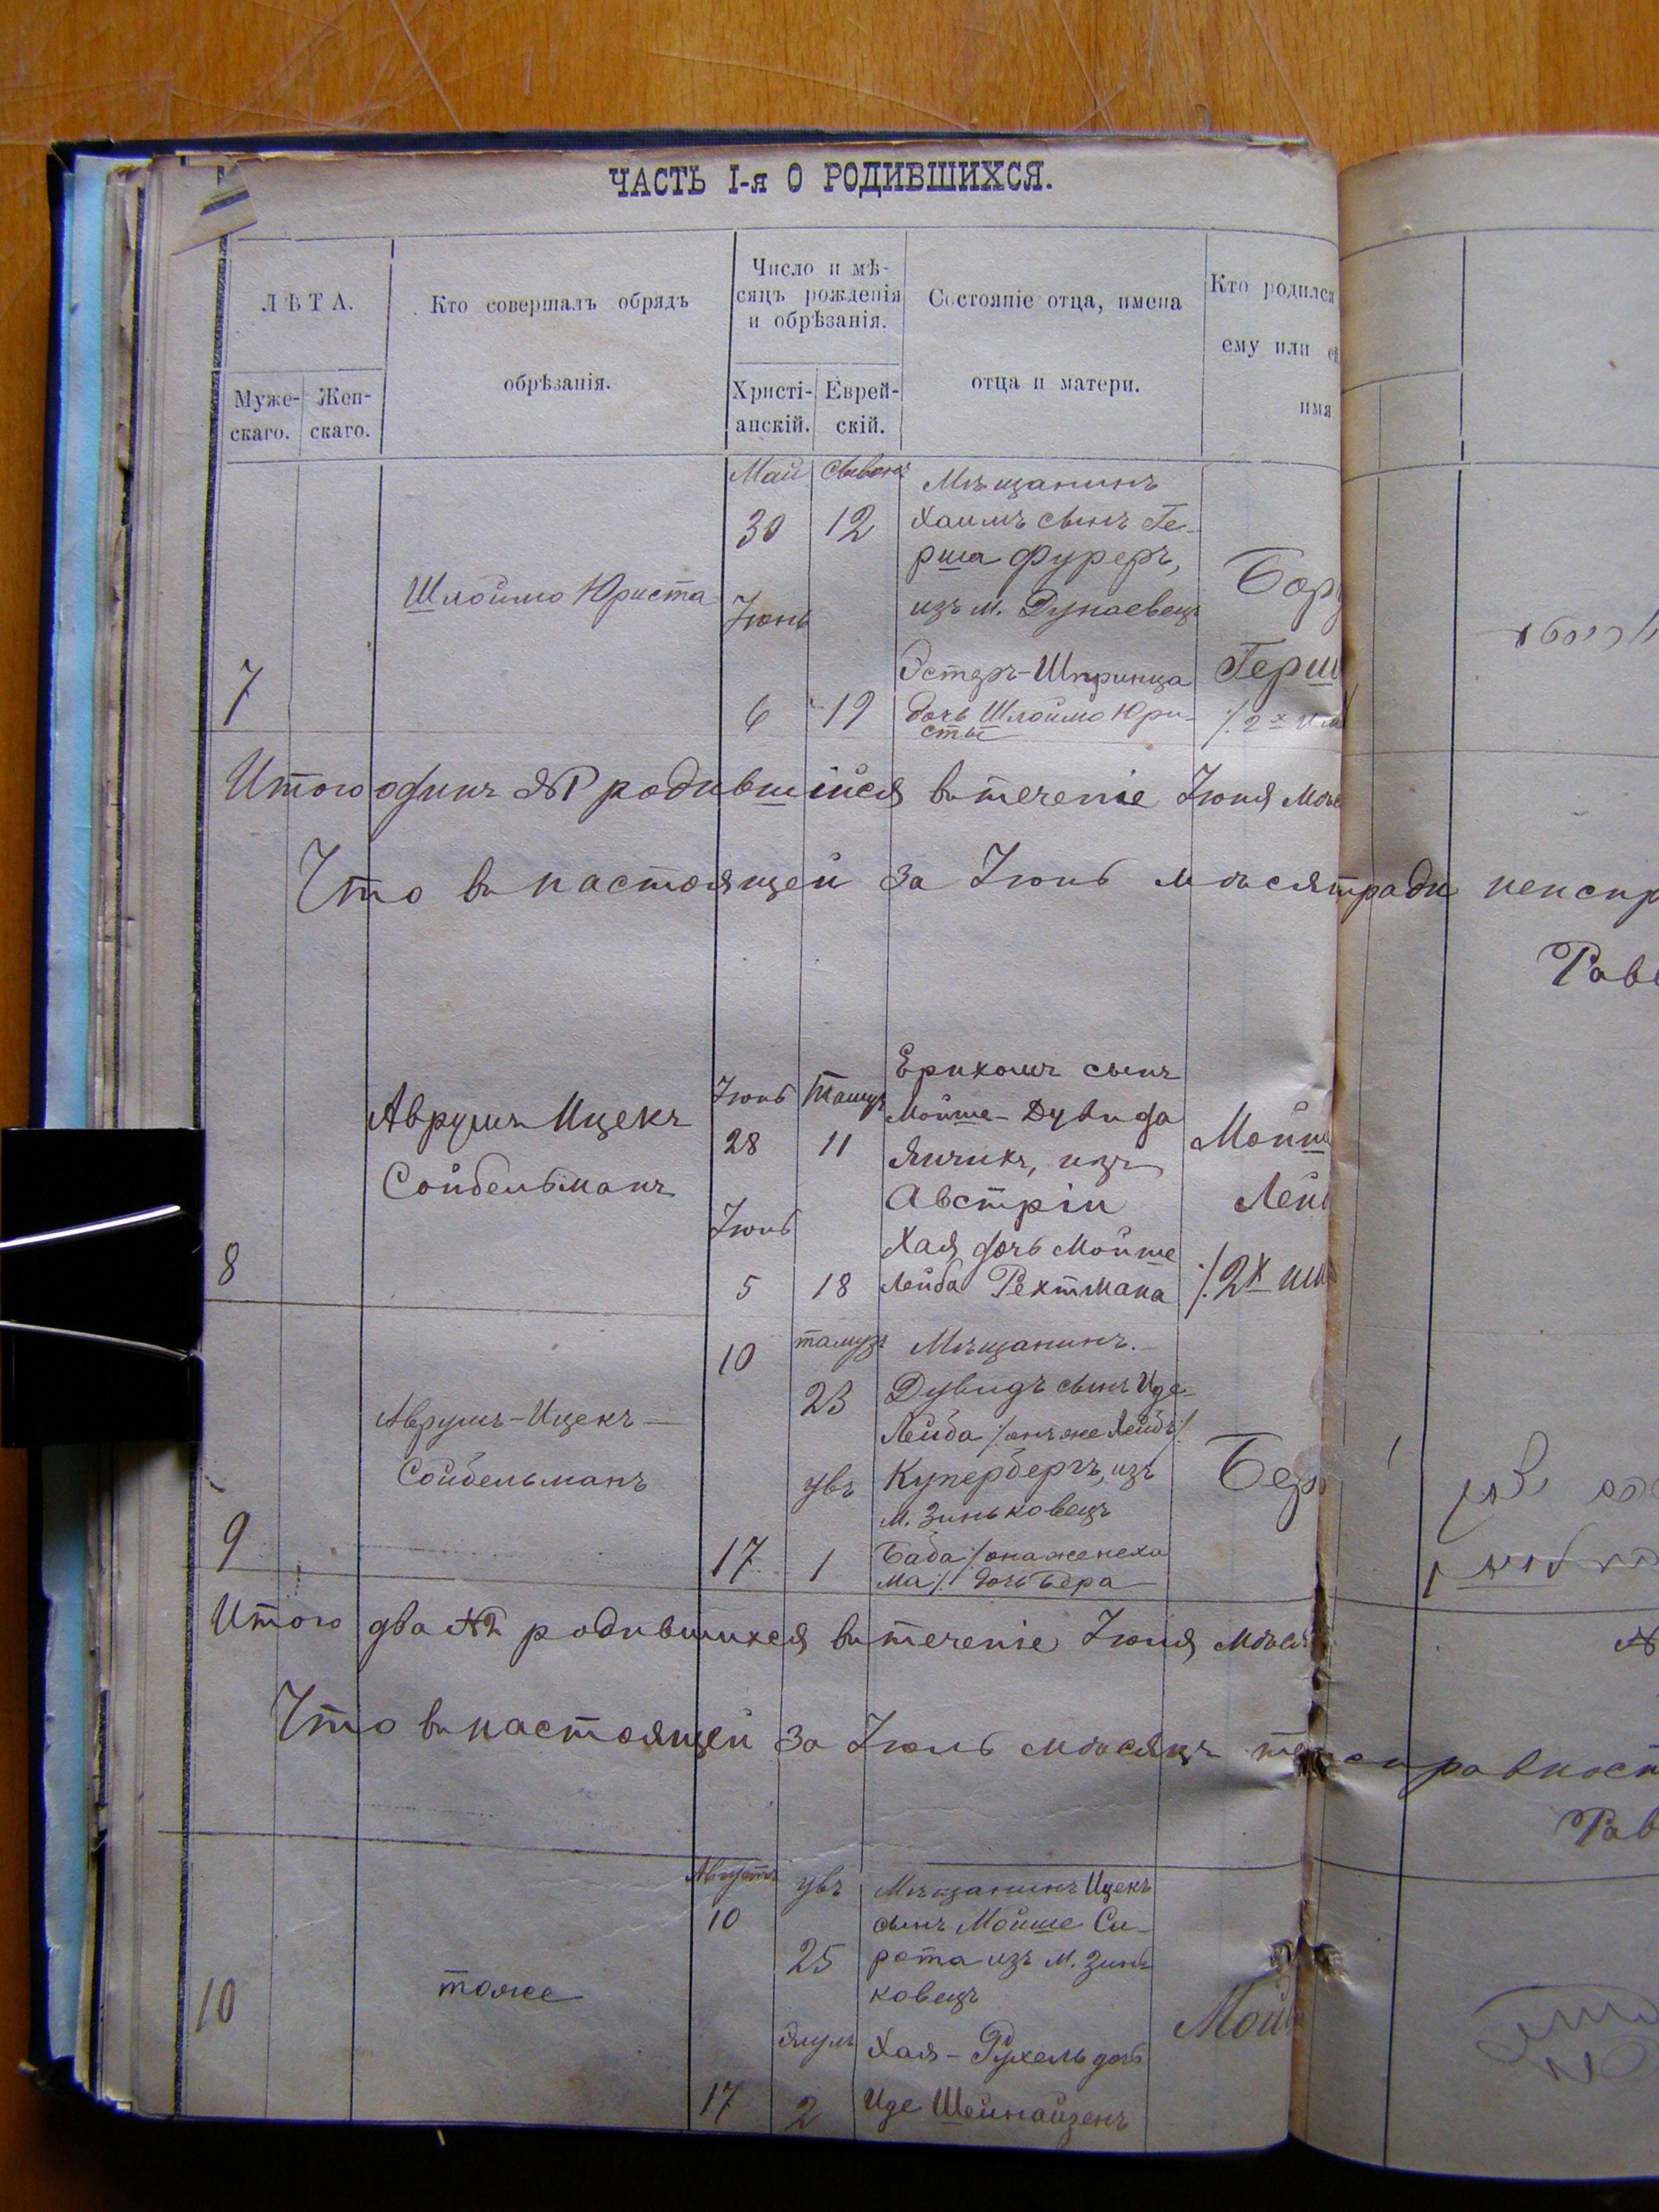 ЧАСТЬ I-я О РОДИВШИХСЯ.
ЛѢТА.
Муже-
скаго.
Жен-
скаго.
Кто совершалъ обрядъ
обрѣзанія.
Число и мѣ-
сяцъ рожденія
и обрѣзанія.
Христі-
анскій.
Еврей-
скій.
Состояніе отца, имена
отца и матери.
Кто родился
ему или
имя
7
Шлоймо Юриста
Май
30
Іюнь
6
Сивонъ
12
19
Мѣщанинъ
Хаимъ сынъ Ге-
рша Фуреръ,
изъ м. Дунаевецъ
Эстеръ-Шпринца
дочь Шлоймо Юри-
сты
Бору
Герш
/. 2х им
Итого одинъ №1 родившійся въ теченіе Іюня мѣс
Что въ настоящей за Іюнь мѣсяц тради неиспр
Рав
8
Аврумъ Ицекъ
Сойбельманъ
Іюнь
28
Іюнь
5
Тамузъ
11
18
Ерихомъ сынъ
Мойше-Дувида
Янчикъ, изъ
Австріи
Хая дочь Мойше
Лейба Рехтмана
Мойш
Лей
/. 2х им
9
Аврумъ-Ицекъ
Сойбельманъ
10
17
тамузъ
23
увъ
1
Мѣщанинъ.
Дувидъ сынъ Иде-
Лейба /.онъ же Лейбъ./
Купербергъ, изъ
м. Зиньковецъ
Баба /.она же неха
ма./ дочь Бера
Бер
Итого два №2 родившихся въ теченіе Іюля мѣся
Что въ настоящей за Іюль мѣсяцъ те справност
Рав
10
тоже
Августъ
10
17
увъ
25
Элулъ
2
Мѣщанинъ Ицекъ
сынъ Мойше Си-
рота изъ м. Зинь-
ковецъ
Хая-Рухель дочь
Иде Шейнайзенъ
Мой